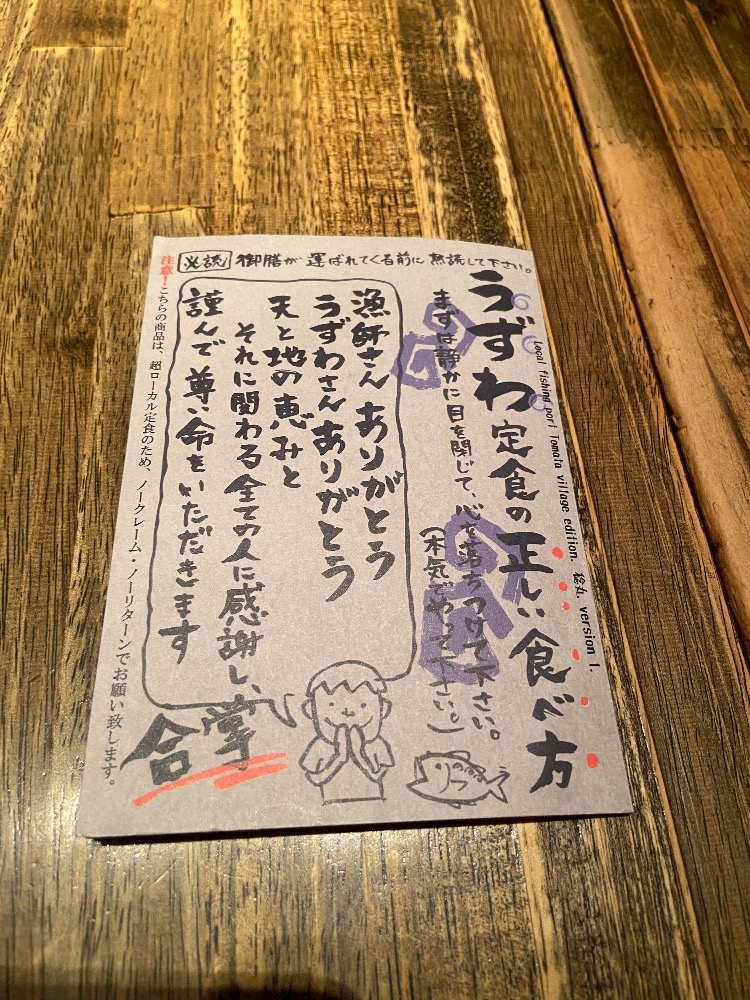 必読 御膳が運ばれてくる前に熟読して下さい。
Local fishing port Tomata village edition. 稔丸. version 1.
うずわ定食の正しい食べ方
まずは静かに目を閉じて、心を落ちつけて下さい。
（本気でやって下さい。）
漁師さんありがとう
うずわさんありがとう
天と地の恵みと
それに関わる全ての人に感謝し、
謹んで尊い命をいただきます
合掌
注意！こちらの商品は、超ローカル定食のため、ノークレーム・ノーリターンでお願い致します。